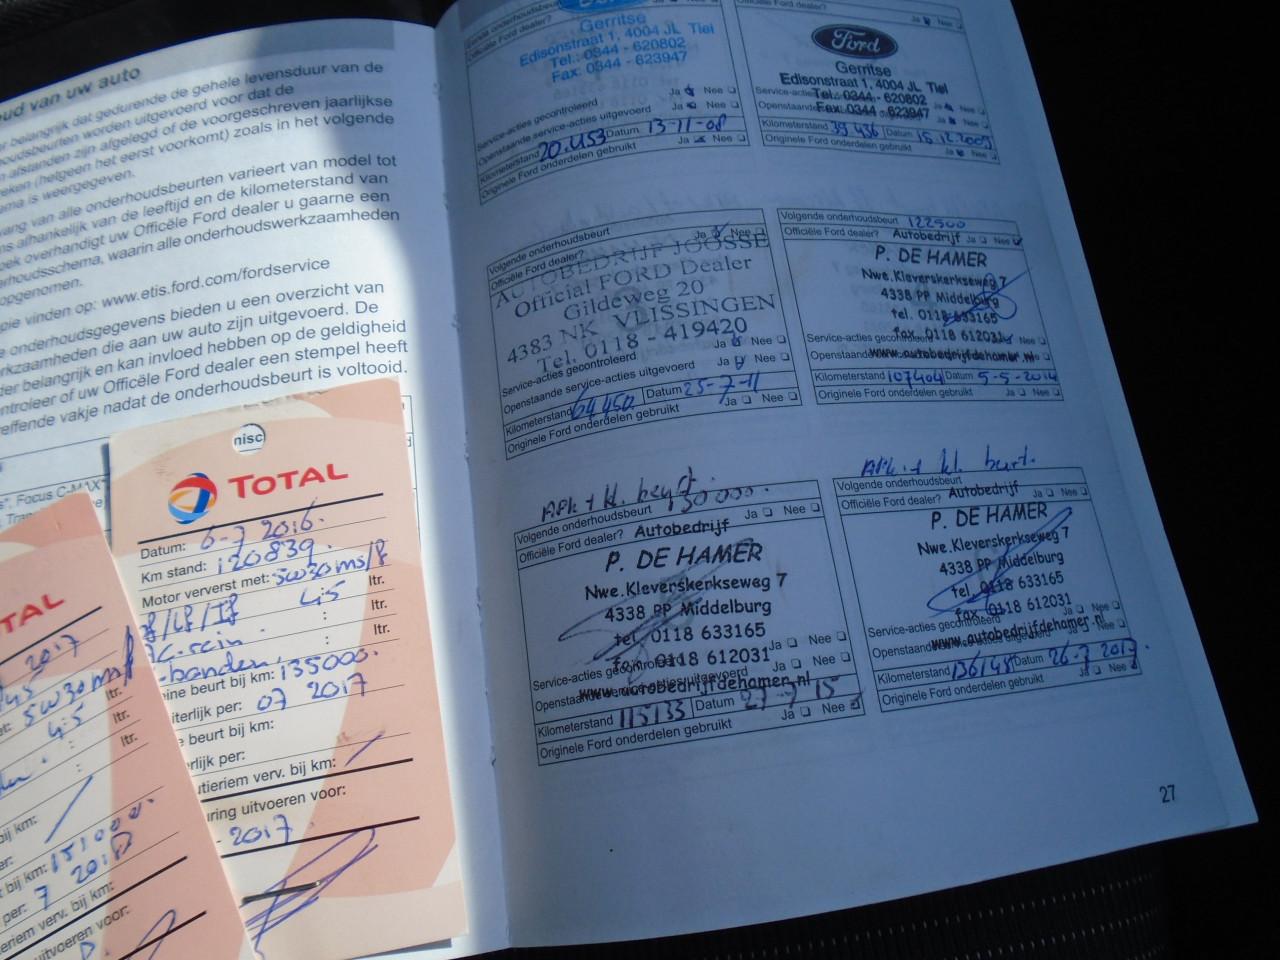 ud van uw auto
r belangrijk dat gedurende de gehele levensduur van de
houdsbeurten worden uitgevoerd voor dat de
n afstanden zijn afgelegd of de voorgeschreven jaarlijkse
eken (hetgeen het eerst voorkomt) zoals in het volgende
ma is weergegeven.
vang van alle onderhoudsbeurten varieert van model tot
ns afhankelijk van de leeftijd en de kilometerstand van
oek overhandigt uw Officële Ford dealer u gaarne een
erhoudsschema, waarin alle onderhoudswerkzaamheden
opgenomen.
pie vinden op: www.etis.ford.com/fordservice
e onderhoudsgegevens bieden u een overzicht van
rkzaamheden die aan uw auto zijn uitgevoerd. De
der belangrijk en kan invloed hebben op de geldigheid
ntroleer of uw Officële Ford dealer een stempel heeft
effende vakje nadat de onderhoudsbeurt is voltooid.
Focus C-MAX
nisc
TOTAL
Datum: 6-7 2016.
Km stand: 120839.
Motor ververst met: 5W30 ms/f
4.5 ltr.
: ltr.
: ltr.
-banden.
ine beurt bij km: 135000.
iterlijk per: 07 2017
e beurt bij km:
rlijk per:
utieriem verv. bij km: /
uring uitvoeren voor:
- 2017
TAL
2017
5W30 ms/f
4.5 ltr.
: ltr.
:
bij km:
er:
t bij km: 151000.
per: 7 2018
ieriem verv. bij km:
uitvoeren voor:
Officiële Ford dealer?
Gerritse
Edisonstraat 1, 4004 JL Tiel
Tel.: 0344 - 620802
Fax: 0344 - 623947
Service-acties gecontroleerd Ja Nee
Openstaande service-acties uitgevoerd Ja Nee
Kilometerstand 20.453 Datum 13-11-08
Originele Ford onderdelen gebruikt Ja Nee
Ja Nee
Ford
Gerritse
Edisonstraat 1, 4004 JL Tiel
Tel.: 0344 - 620802
Fax: 0344 - 623947
Kilometerstand 39 436 Datum 15.12.2009
Originele Ford onderdelen gebruikt Ja Nee
Volgende onderhoudsbeurt
Officiële Ford dealer? Ja Nee
AUTOBEDRIJF JOOSSE
Official FORD Dealer
Gildeweg 20
4383 NK VLISSINGEN
Tel. 0118 - 419420
Service-acties gecontroleerd Ja Nee
Openstaande service-acties uitgevoerd Ja Nee
Kilometerstand 64450. Datum 25-7-11
Originele Ford onderdelen gebruikt Ja Nee
Volgende onderhoudsbeurt 122500
Officiële Ford dealer? Autobedrijf Ja Nee
P. DE HAMER
Nwe.Kleverskerkseweg 7
4338 PP Middelburg
tel. 0118-633165
fax. 0118 612031
Service-acties gecontroleerd
www.autobedrijfdehamer.nl
Kilometerstand 107404 Datum 5-5-2014
Originele Ford onderdelen gebruikt Ja Nee
APK + kl. beurt.
Volgende onderhoudsbeurt 130000.
Officiële Ford dealer? Autobedrijf Ja Nee
P. DE HAMER
Nwe.Kleverskerkseweg 7
4338 PP Middelburg
tel. 0118 633165
fax. 0118 612031
Service-acties gecontroleerd Ja Nee
www.autobedrijfdehamer.nl
Kilometerstand 115133 Datum 27-7-15
Originele Ford onderdelen gebruikt Ja Nee
APK + kl. beurt.
Volgende onderhoudsbeurt
Officiële Ford dealer? Autobedrijf Ja Nee
P. DE HAMER
Nwe.Kleverskerkseweg 7
4338 PP Middelburg
tel. 0118 633165
fax. 0118 612031
Service-acties gecontroleerd Ja Nee
www.autobedrijfdehamer.nl
Kilometerstand 136148 Datum 26-7 2017.
Originele Ford onderdelen gebruikt Ja Nee
27